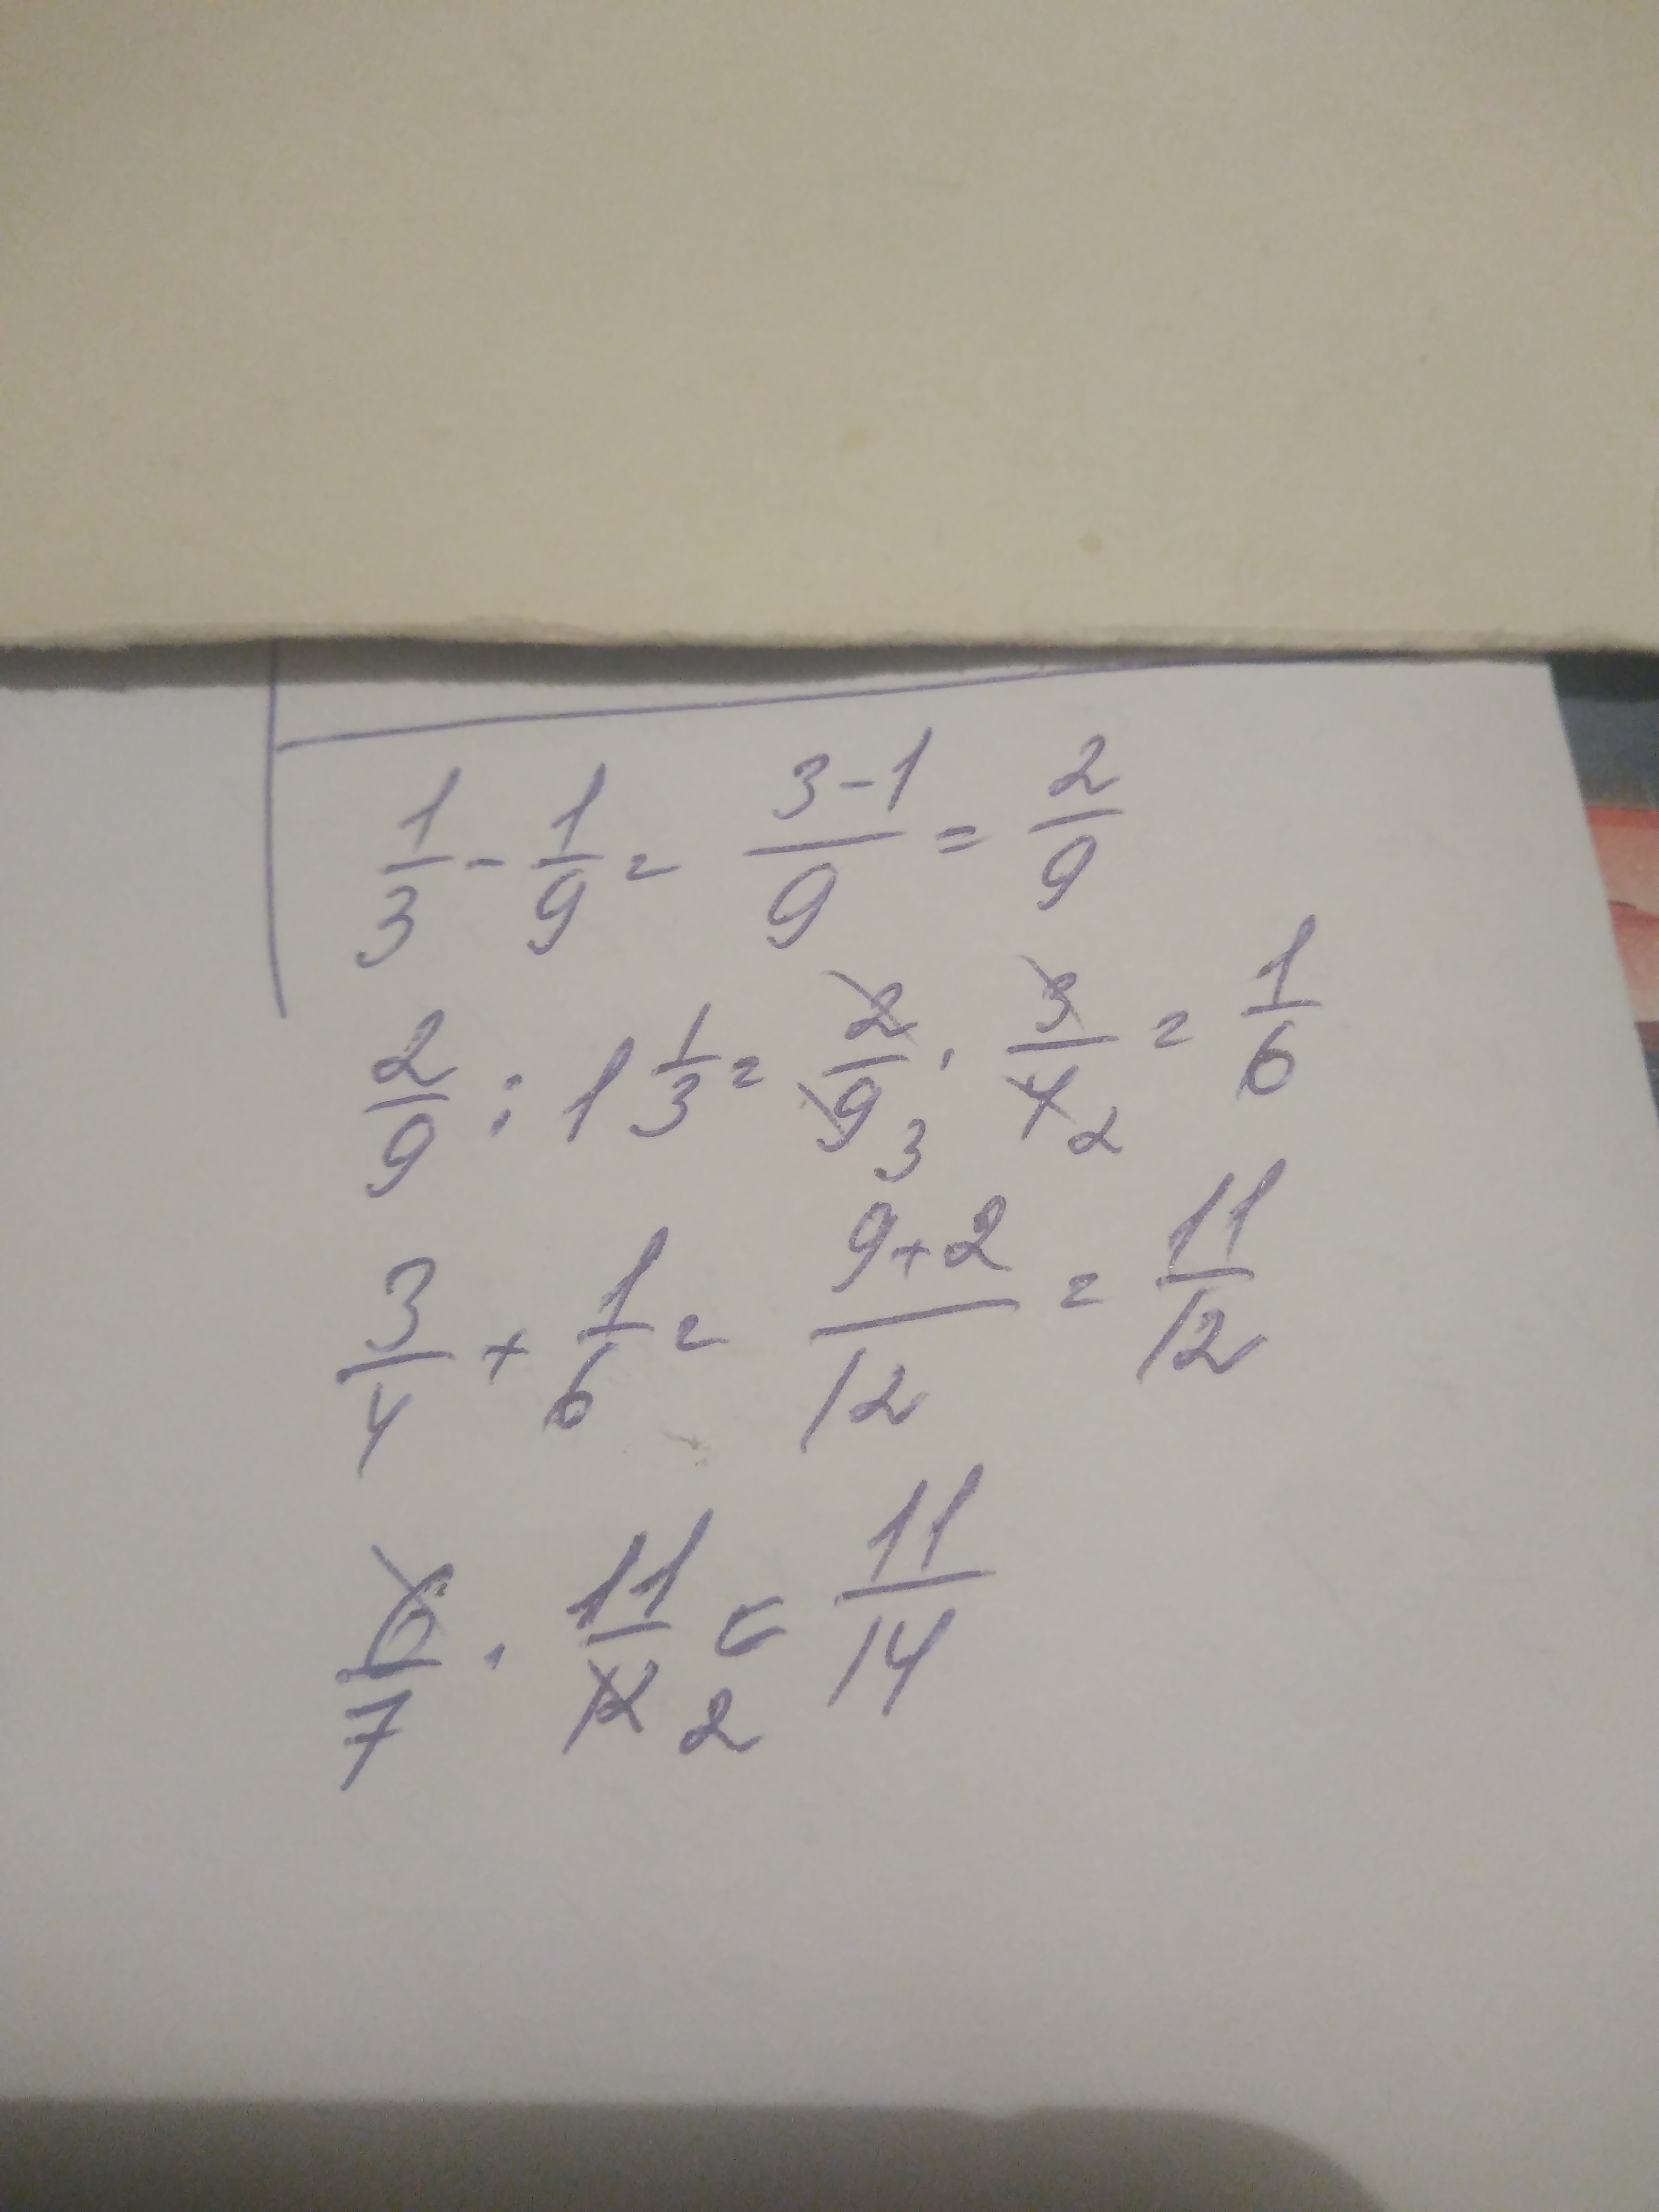 1/3 - 1/9 = (3-1)/9 = 2/9
2/9 : 1 1/3 = 2/9 3 · 3/4 2 = 1/6
3/4 + 1/6 = (9+2)/12 = 11/12
6/7 · 11/12 2 = 11/14